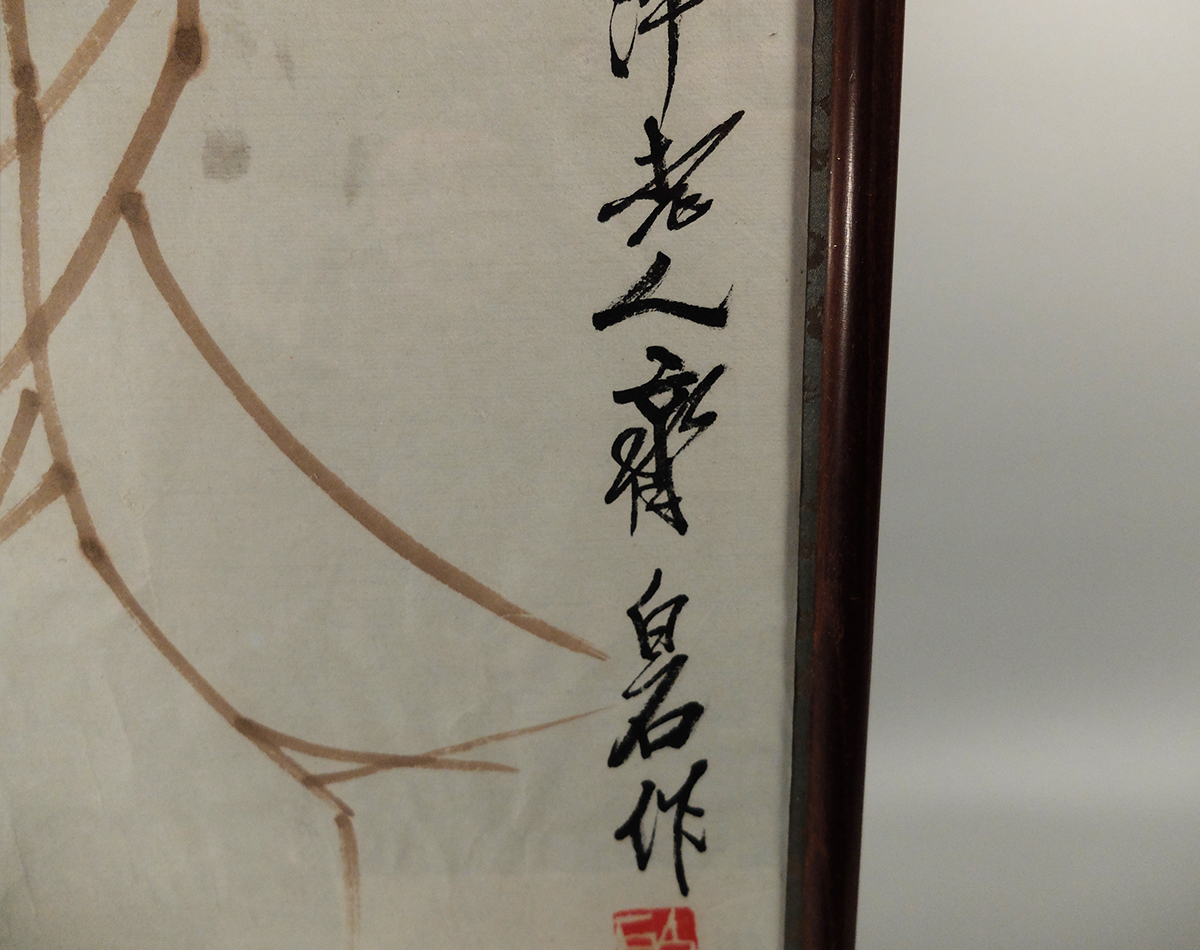 老人齊白石作